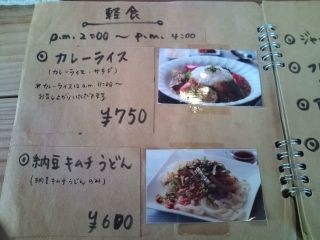 軽食
p.m.2:00〜p.m.4:00
◎カレーライス
(カレーライス・サラダ)
*カレーライスはa.m. 11:00〜
お召し上がりいただけます。
¥750
◎納豆キムチうどん
(納豆キムチうどんのみ)
¥600
ジャ